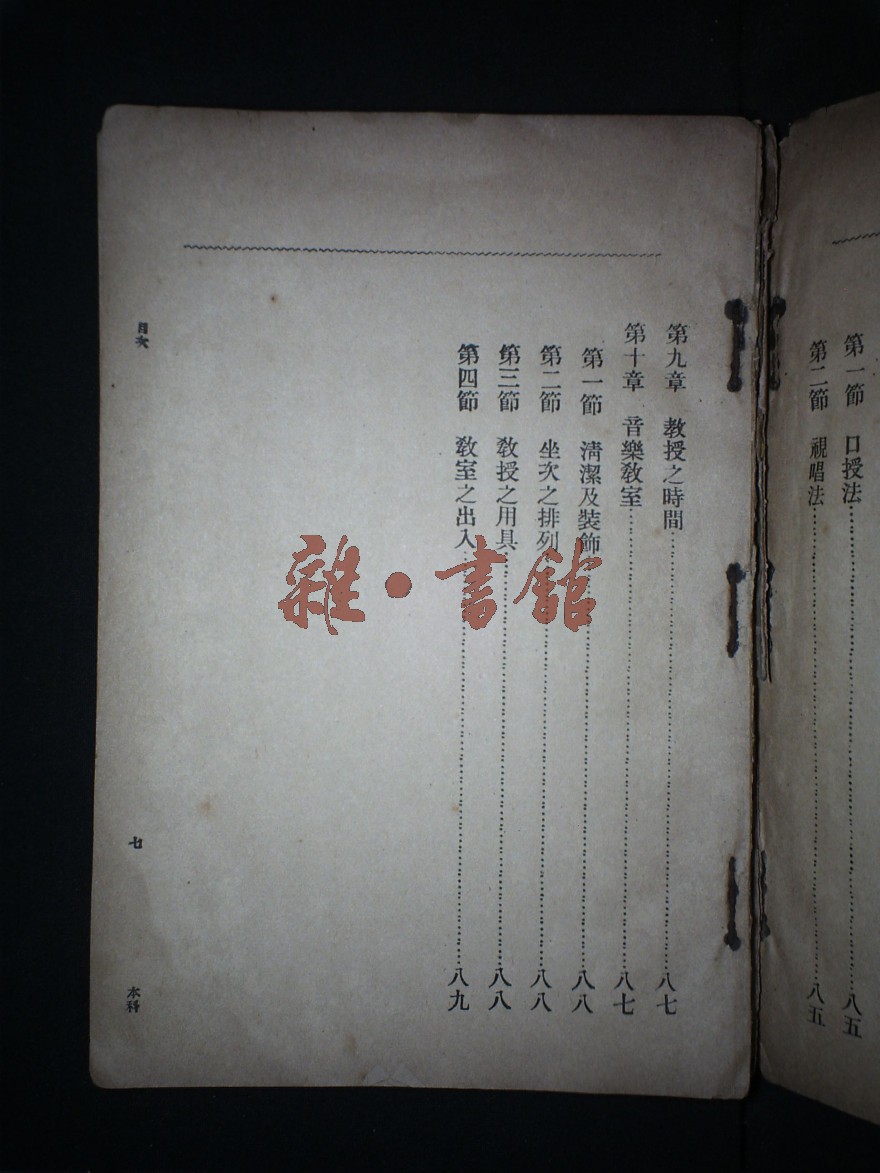 第一節　口授法……八五
第二節　視唱法……八五
第九章　教授之時間……八七
第十章　音樂教室……八七
第一節　清潔及裝飾……八八
第二節　坐次之排列……八八
第三節　教授之用具……八八
第四節　教室之出入……八九
目次
七
本科
雜·書館